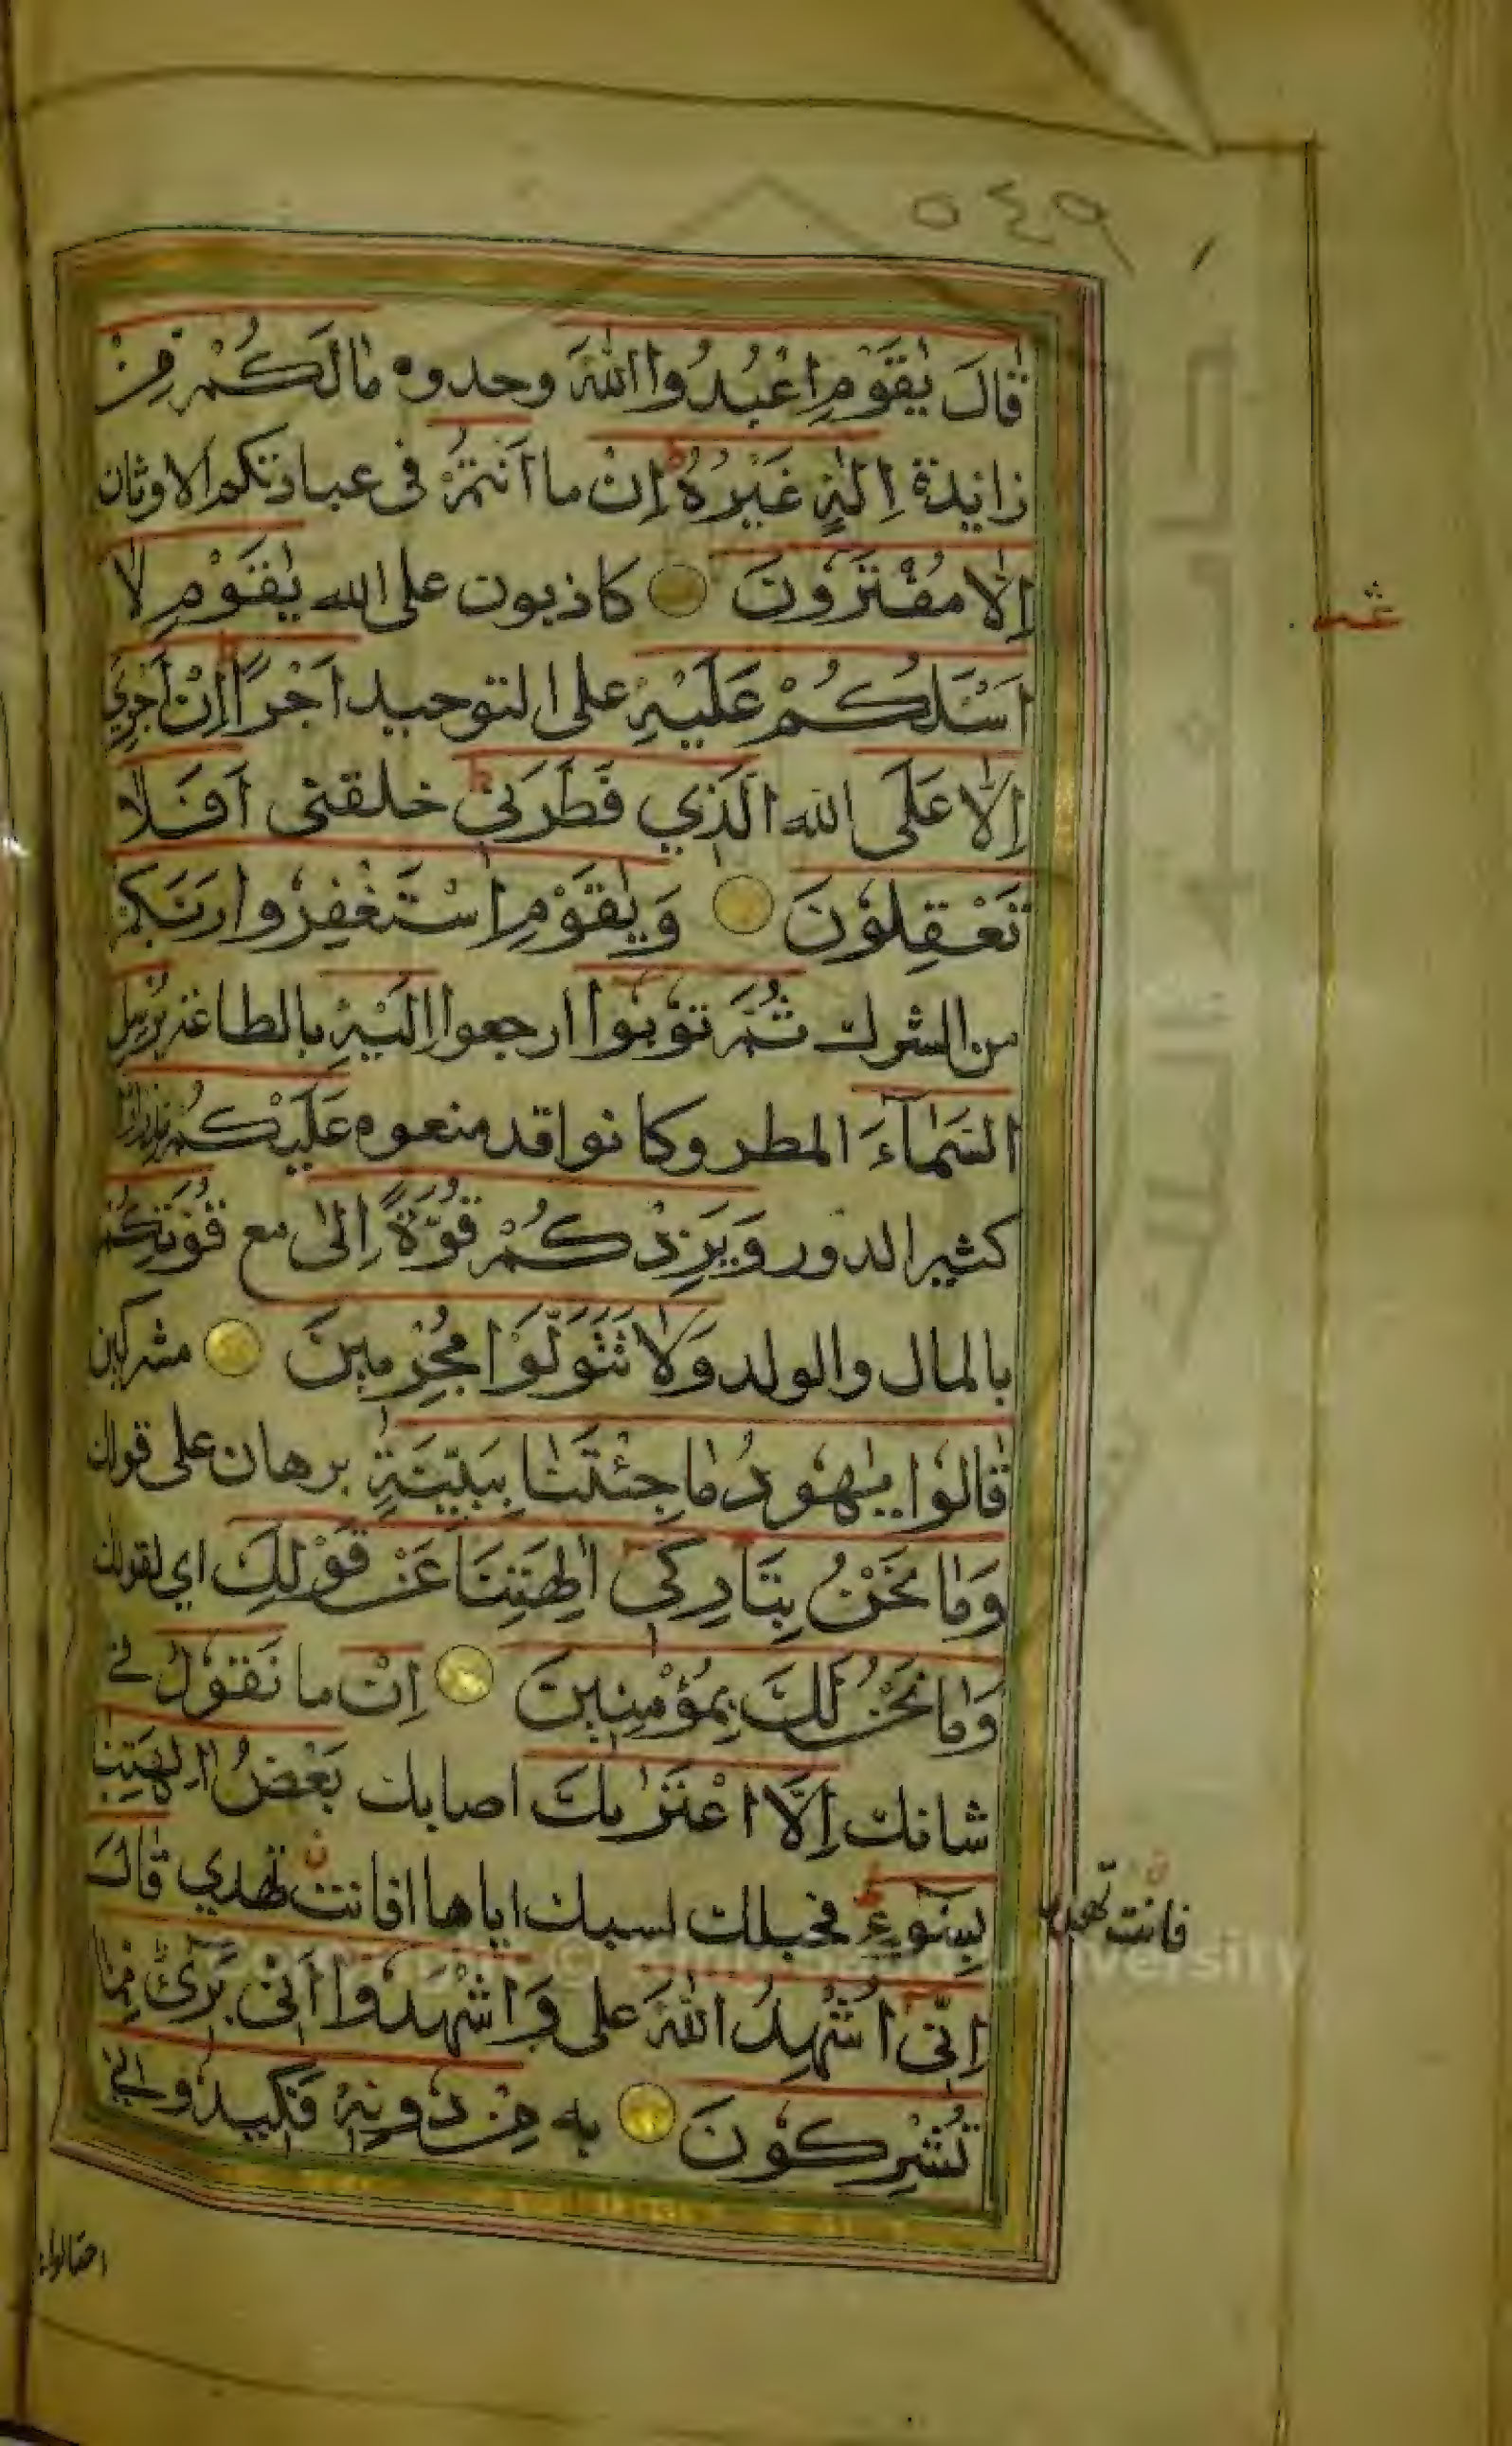 ٥٤٩
قَالَ يٰقَوْمِ اعْبُدُوا اللّٰهَ وحدوه مَا لَكُمْ مِّنْ
زايدة اِلٰهٍ غَيْرُهٗ اِنْ ما اَنْتُمْ فى عبادتكم الاوثان
اِلَّا مُفْتَرُوْنَ كاذبون على الله يٰقَوْمِ لَا
اَسْـَٔلُكُمْ عَلَيْهِ على التوحيد اَجْرًا اِنْ اَجْرِيَ
اِلَّا عَلَى الله الَّذِي فَطَرَنِيْ خلقنى اَفَلَا
تَعْقِلُوْنَ وَيٰقَوْمِ اسْتَغْفِرُوا رَبَّكُمْ
من الشرك ثُمَّ تُوْبُوْا ارجعوا اِلَيْهِ بالطاعة يُرْسِلِ
السَّمَآءَ المطر وكانوا قد منعوه عَلَيْكُمْ مِّدْرَارًا
كثير الدرور وَيَزِدْكُمْ قُوَّةً اِلٰى مع قُوَّتِكُمْ
بالمال والولد وَلَا تَتَوَلَّوْا مُجْرِمِيْنَ مشركين
قَالُوْا يٰهُوْدُ مَا جِئْتَنَا بِبَيِّنَةٍ برهان على قولك
وَمَا نَحْنُ بِتَارِكِيْ اٰلِهَتِنَا عَنْ قَوْلِكَ اي لقولك
وَمَا نَحْنُ لَكَ بِمُؤْمِنِيْنَ اِنْ ما نَقُوْلُ فى
شانك اِلَّا اعْتَرٰىكَ اصابك بَعْضُ اٰلِهَتِنَا
بِسُوْٓءٍ فخبلك لسبك اياها افانت تهدي قَالَ
فانت تهدي
اِنِّيْ اُشْهِدُ اللّٰهَ على وَاشْهَدُوْا اَنِّيْ بَرِيْٓءٌ مِّمَّا
تُشْرِكُوْنَ به مِنْ دُوْنِهٖ فَكِيْدُوْنِيْ
احتالوا